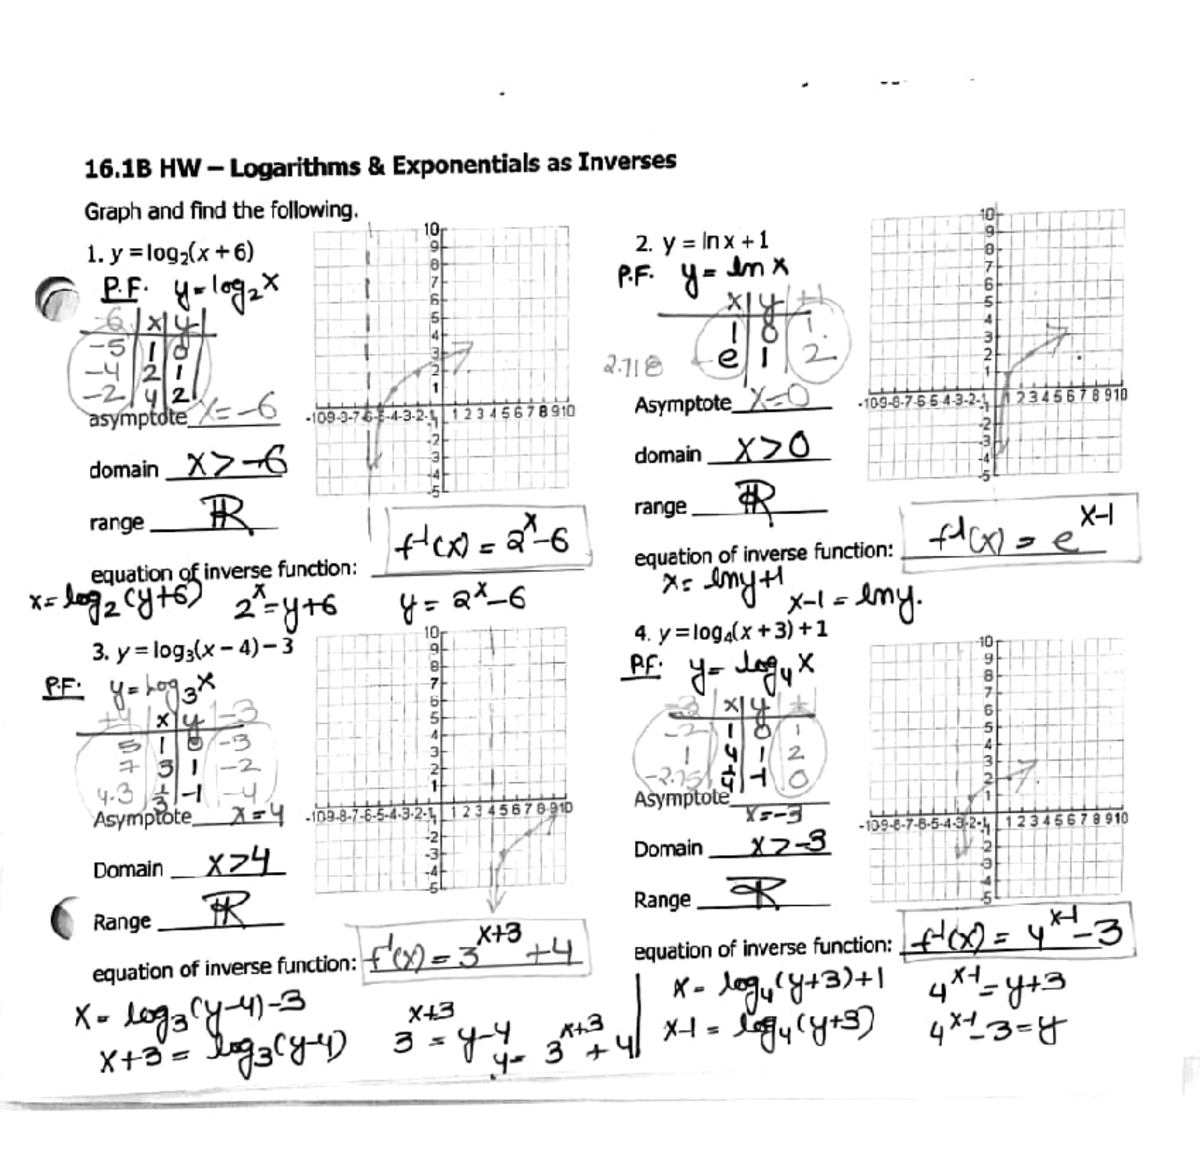 16.1B HW – Logarithms & Exponentials as Inverses
Graph and find the following.
1. y = log₂(x + 6)
P.F. y = log₂x
-6 | x | y
-5 | 1 | 0
-4 | 2 | 1
-2 | 4 | 2
asymptote x = -6
domain x > -6
range ℝ
equation of inverse function: f⁻¹(x) = 2ˣ - 6
x = log₂(y+6) 2ˣ = y+6 y = 2ˣ - 6
10
9
8
7
6
5
4
3
2
1
-10-9-8-7-6-5-4-3-2-1 1 2 3 4 5 6 7 8 9 10
-2
-3
-4
-5
2. y = ln x + 1
P.F. y = ln x
x | y | +1
1 | 0 | 1
2.718 e | 1 | 2
Asymptote x = 0
domain x > 0
range ℝ
equation of inverse function: f⁻¹(x) = eˣ⁻¹
x = lny+1 x-1 = lny.
10
9
8
7
6
5
4
3
2
1
-10-9-8-7-6-5-4-3-2-1 1 2 3 4 5 6 7 8 9 10
-2
-3
-4
-5
3. y = log₃(x – 4) – 3
P.F: y = log₃x
+4 | x | y | -3
5 | 1 | 0 | -3
7 | 3 | 1 | -2
4.3 | 1/3 | -1 | -4
Asymptote x = 4
Domain x > 4
Range ℝ
equation of inverse function: f⁻¹(x) = 3ˣ⁺³ + 4
x = log₃(y-4)-3
x+3 = log₃(y-4) 3ˣ⁺³ = y-4 y = 3ˣ⁺³ + 4
10
9
8
7
6
5
4
3
2
1
-10-9-8-7-6-5-4-3-2-1 1 2 3 4 5 6 7 8 9 10
-2
-3
-4
-5
4. y = log₄(x + 3) + 1
P.F: y = log₄x
-3 | x | y | +
-2 | 1 | 0 | 1
1 | 4 | 1 | 2
-2.75 | 1/4 | -1 | 0
Asymptote x = -3
Domain x > -3
Range ℝ
equation of inverse function: f⁻¹(x) = 4ˣ⁻¹ - 3
x = log₄(y+3)+1 4ˣ⁻¹ = y+3
x-1 = log₄(y+3) 4ˣ⁻¹ - 3 = y
10
9
8
7
6
5
4
3
2
1
-10-9-8-7-6-5-4-3-2-1 1 2 3 4 5 6 7 8 9 10
-2
-3
-4
-5